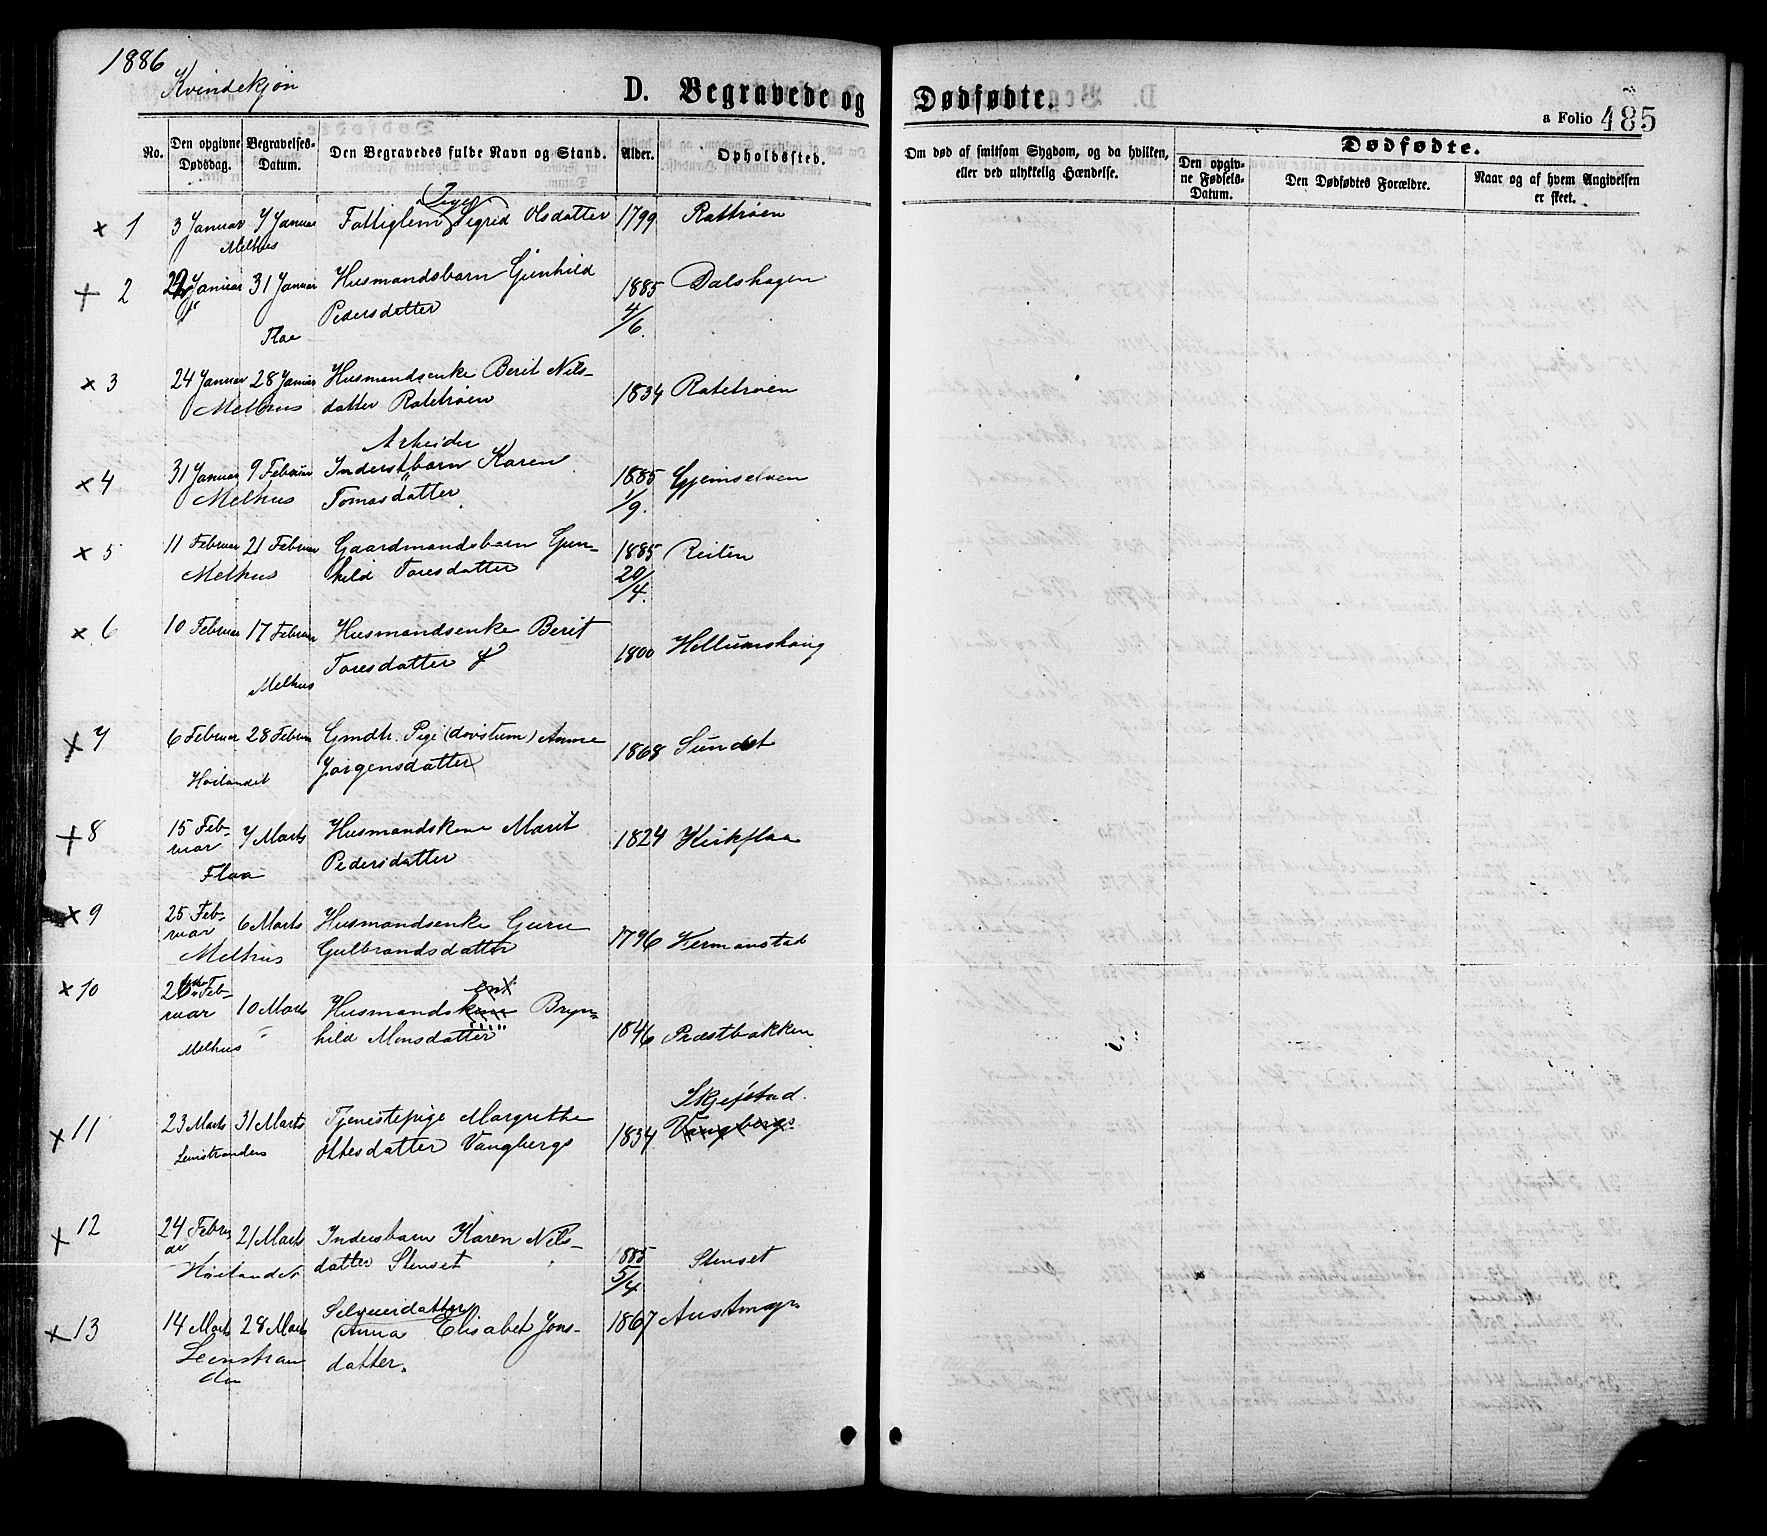 1886
Kvindekjøn
D. Begravede og Dødfødte.
a Folio 485
No.
Den opgivne Dødsdag.
Begravelses-Datum.
Den Begravedes fulde Navn og Stand.
Alder.
Opholdssted.
Om død af smitsom Sygdom, og da hvilken,
eller ved ulykkelig Hændelse.
Dødfødte.
Den opgiv-
ne Fødsels-
Datum.
Den Dødfødtes Forældre.
Naar og af hvem Angivelsen
er skeet.
Pige
× 1 3 Januar 7 Januar Fattiglem Sigrid Olsdatter 1799
Melhus
+ 2 Januar 31 Januar Husmandsbarn Gunhild 1885 Dalshagen
Pedersdatter 4/6.
Flaa
× 3 24 Januar 28 Januar Husmandsenke Berit Nils-
Melhus datter Ratetrøen 1834 Ratetrøen
Arbeider
× 4 31 Januar 9 Februar Inderstbarn Karen 1885
Melhus Tomasdatter 1/9.
× 5 11 Februar 21 Februar Gaardmandsbarn Gun- 1885 Reiten
Melhus hild Toresdatter 20/4.
× 6 10 Februar 17 Februar Husmandsenke Berit
Toresdatter 1800
Melhus
× 7 6 Februar 28 Februar Gmdtr. Pige (døvstum) Anne
Jørgensdatter 1868 Sundet
Høilandet
+ 8 15 Feb-
ruar 7 Marts Husmandskone Marit 1824 Kirkflaa
Flaa Pedersdatter
× 9 25 Feb-
ruar 6 Marts Husmandsenke Guru 1796
Melhus Gulbrandsdatter
× 10 Feb-
ruar 10 Marts Husmandskone Bryn-
Melhus hild Monsdatter 1846 Præstbakken
Skjefstad.
× 11 23 Marts 31 Marts Tjenestepige Margrethe Vangbergs
Leinstranden Ottesdatter Vangbergs 1834
× 12 24 Febru
ar 21 Marts Inderstbarn Karen Nils- 1885
Høilandet datter Stenset 5/4 Stenset
Selveierdatter
× 13 14 Marts 28 Marts Anna Elisabet Jons- 1867
Leinstran datter.
den